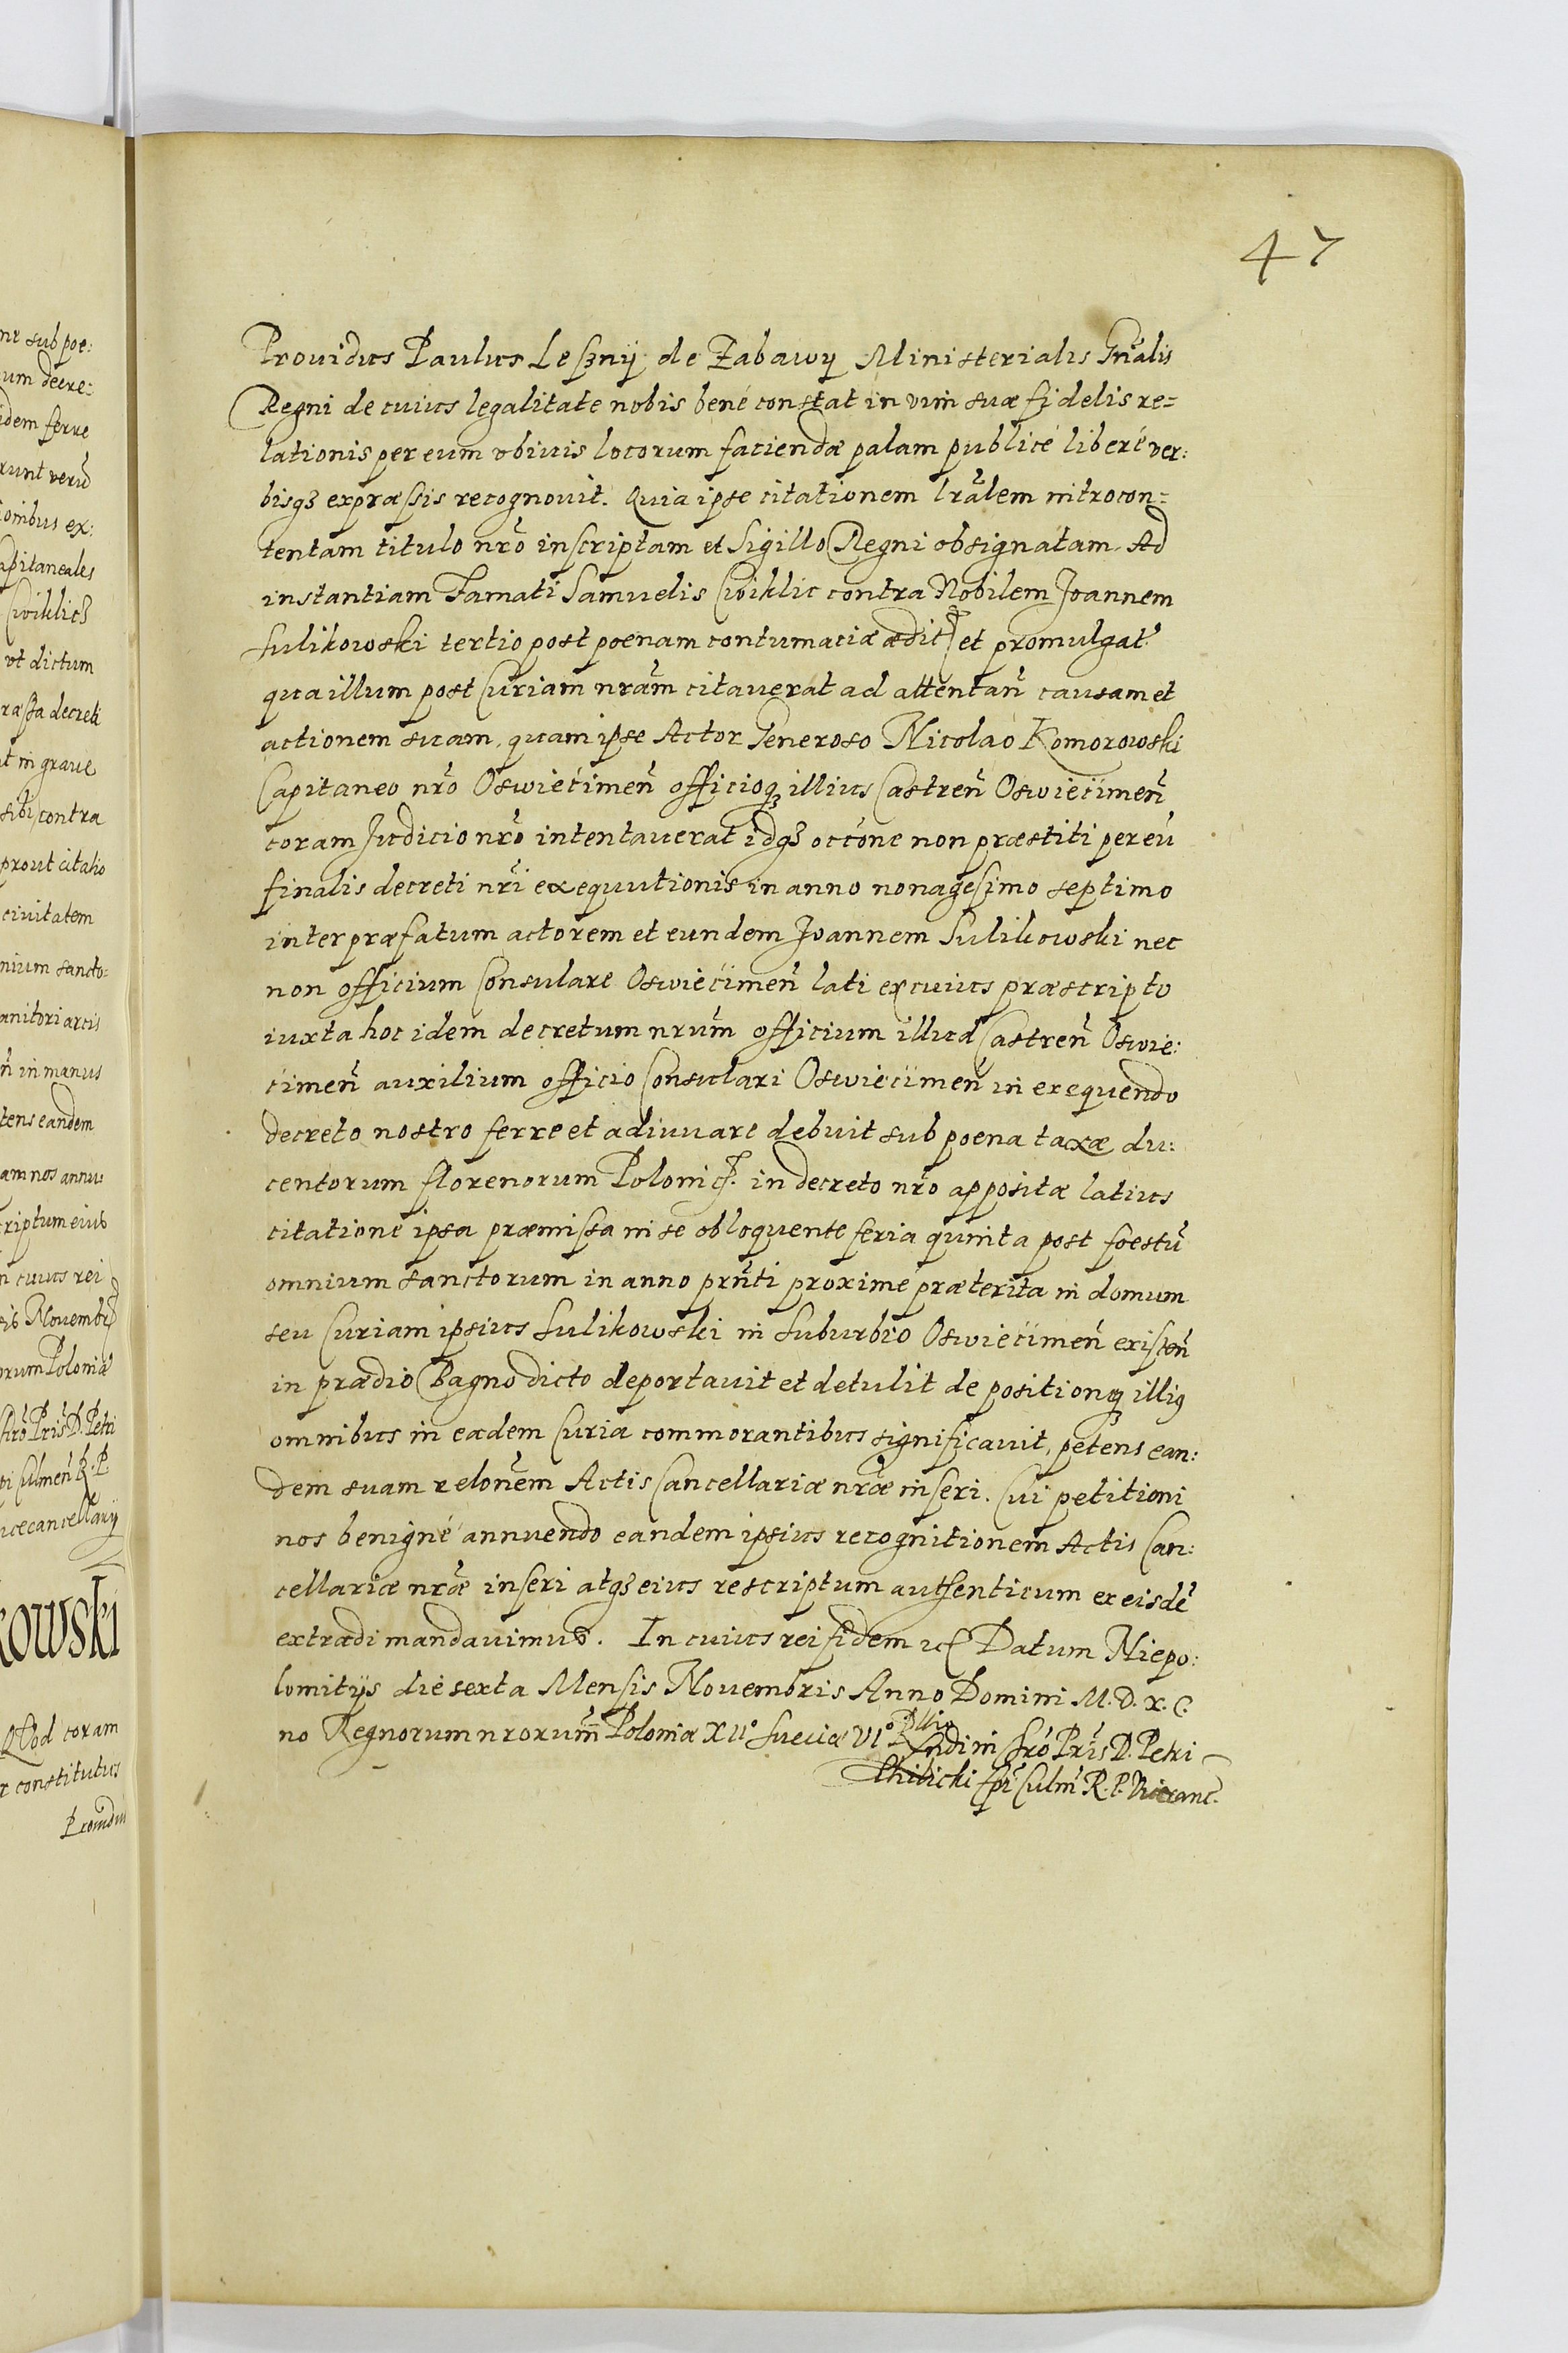 47
Prouidus Paulus Leszny de Zabawy Ministerialis Gnr̃alis
Regni de cuius legalitate nobis bené constat in vim suæ fidelis re=
lationis per eum vbiuis locorum faciendæ palam publicé liberé ver:
bisq́ȝ expræssis recognouit. Quia ipse citationem lrãlem introcon=
tentam titulo nrõ inscriptam et Sigillo Regni obsignatam. Ad
instantiam Famati Samuelis Cwiklic contra Nobilem Joannem
Sulikowski tertio post poenam contumaciæ ædit et promulgat
qua illum post Curiam nrãm citauerat ad attentan̄ causam et
actionem suam, quam ipse Actor Generoso Nicolao Komorowski
Capitaneo nrõ Oswiecimen̄ officioq́ȝ illius Castren̄ Oswiecimen̄
coram Judicio nrõ intentauerat idq́ȝ occõne non præstiti per eū
finalis decreti nrĩ exequutionis in anno nonagesimo septimo
inter præfatum actorem et eundem Joannem Sulikowski nec
non officium Consulare Oswiecimen̄ lati ex cuius præscripto
iuxta hoc idem decretum nrũm officium illud Castren̄ Oswie:
cimen̄ auxilium officio Consulari Oswiecimen̄ in exequendo
decreto nostro ferre et adiuuare debuit sub poena taxæ du:
centorum florenorum Polonic. in decreto nrõ appositæ latius
citatione ipsa præmissa in se obloquente feria quinta post foestū
omnium sanctorum in anno prñti proximé præterita in domum
seu Curiam ipsius Sulikowski in Suburbio Oswiecimen̄ existen̄
in prædio Bagno dicto deportauit et detulit de positionq́ȝ illiq
omnibus in eadem Curia commorantibus significauit, petens ean:
dem suam relonẽm Actis Cancellariæ nrãe inseri. Cui petitioni
nos benigné annuendo eandem ipsius recognitionem Actis Can:
cellariæ nrãe inseri atq́ȝ eius rescriptum authenticum ex eisdē
extradi mandauimus. In cuius rei fidem etc Datum Niepo:
lomitijs die sexta Mensis Nouembris Anno Domini M.D.X.C.
no Regnorum nrorum̃ Poloniæ XIIº Sueciæ VIº
Rndi in Chrõ Pris̃ D. Petri
Tilicki Epĩ Culm̃ R. P. Vicecanc.